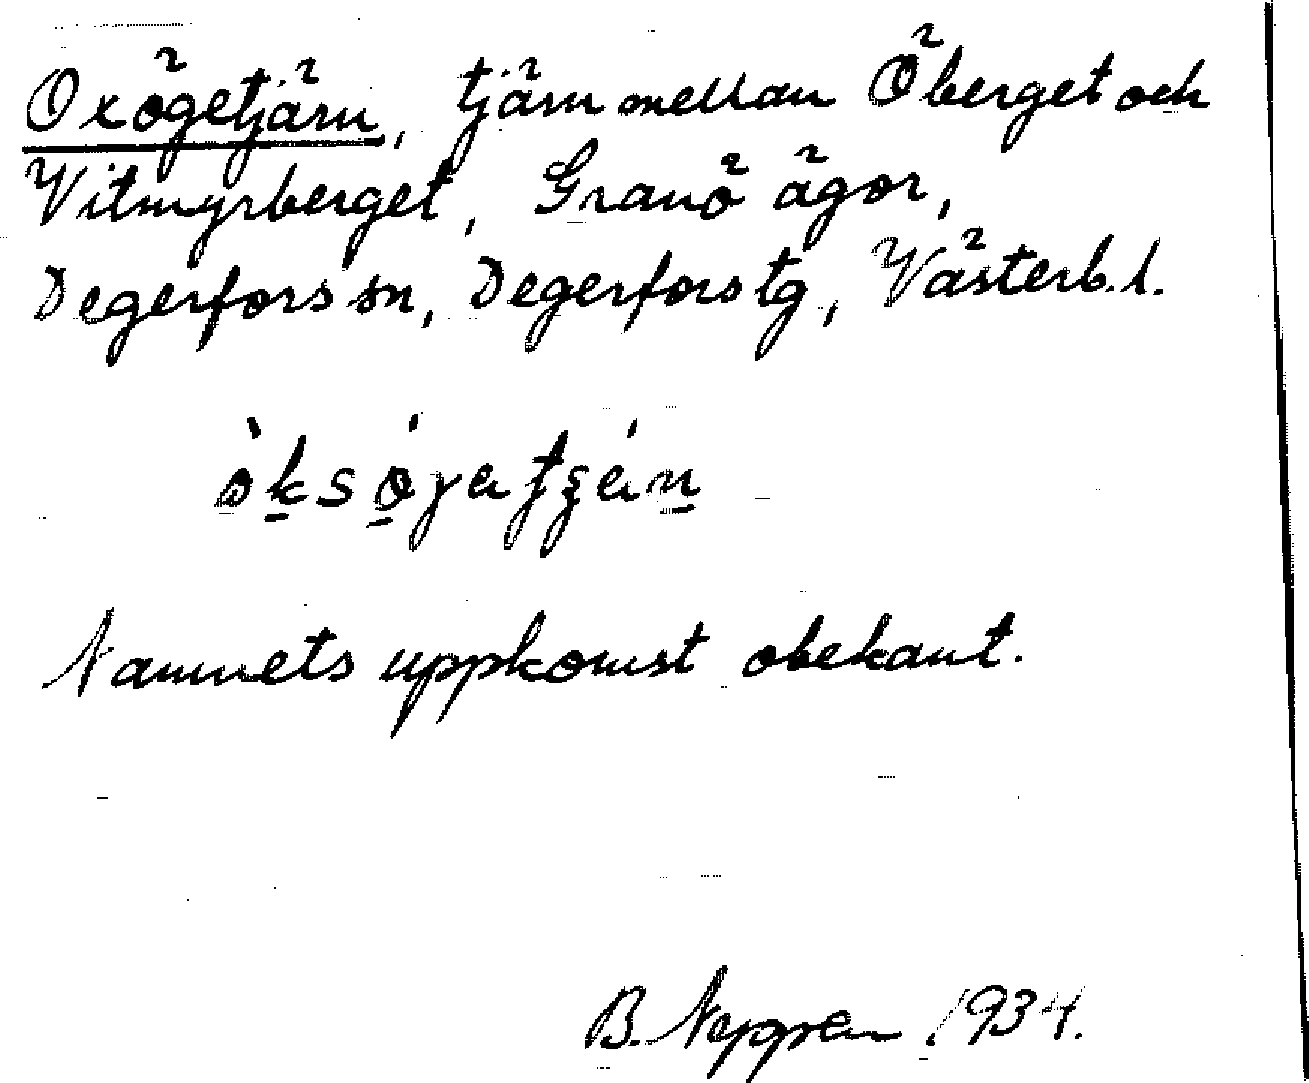 Oxögetjärn, tjärn mellan Öberget och
Vitmyrberget, Granö ägor,
Degerfors sn, Degerfors tg, Västerb. l.
Namnets uppkomst obekant.
B. 1934.